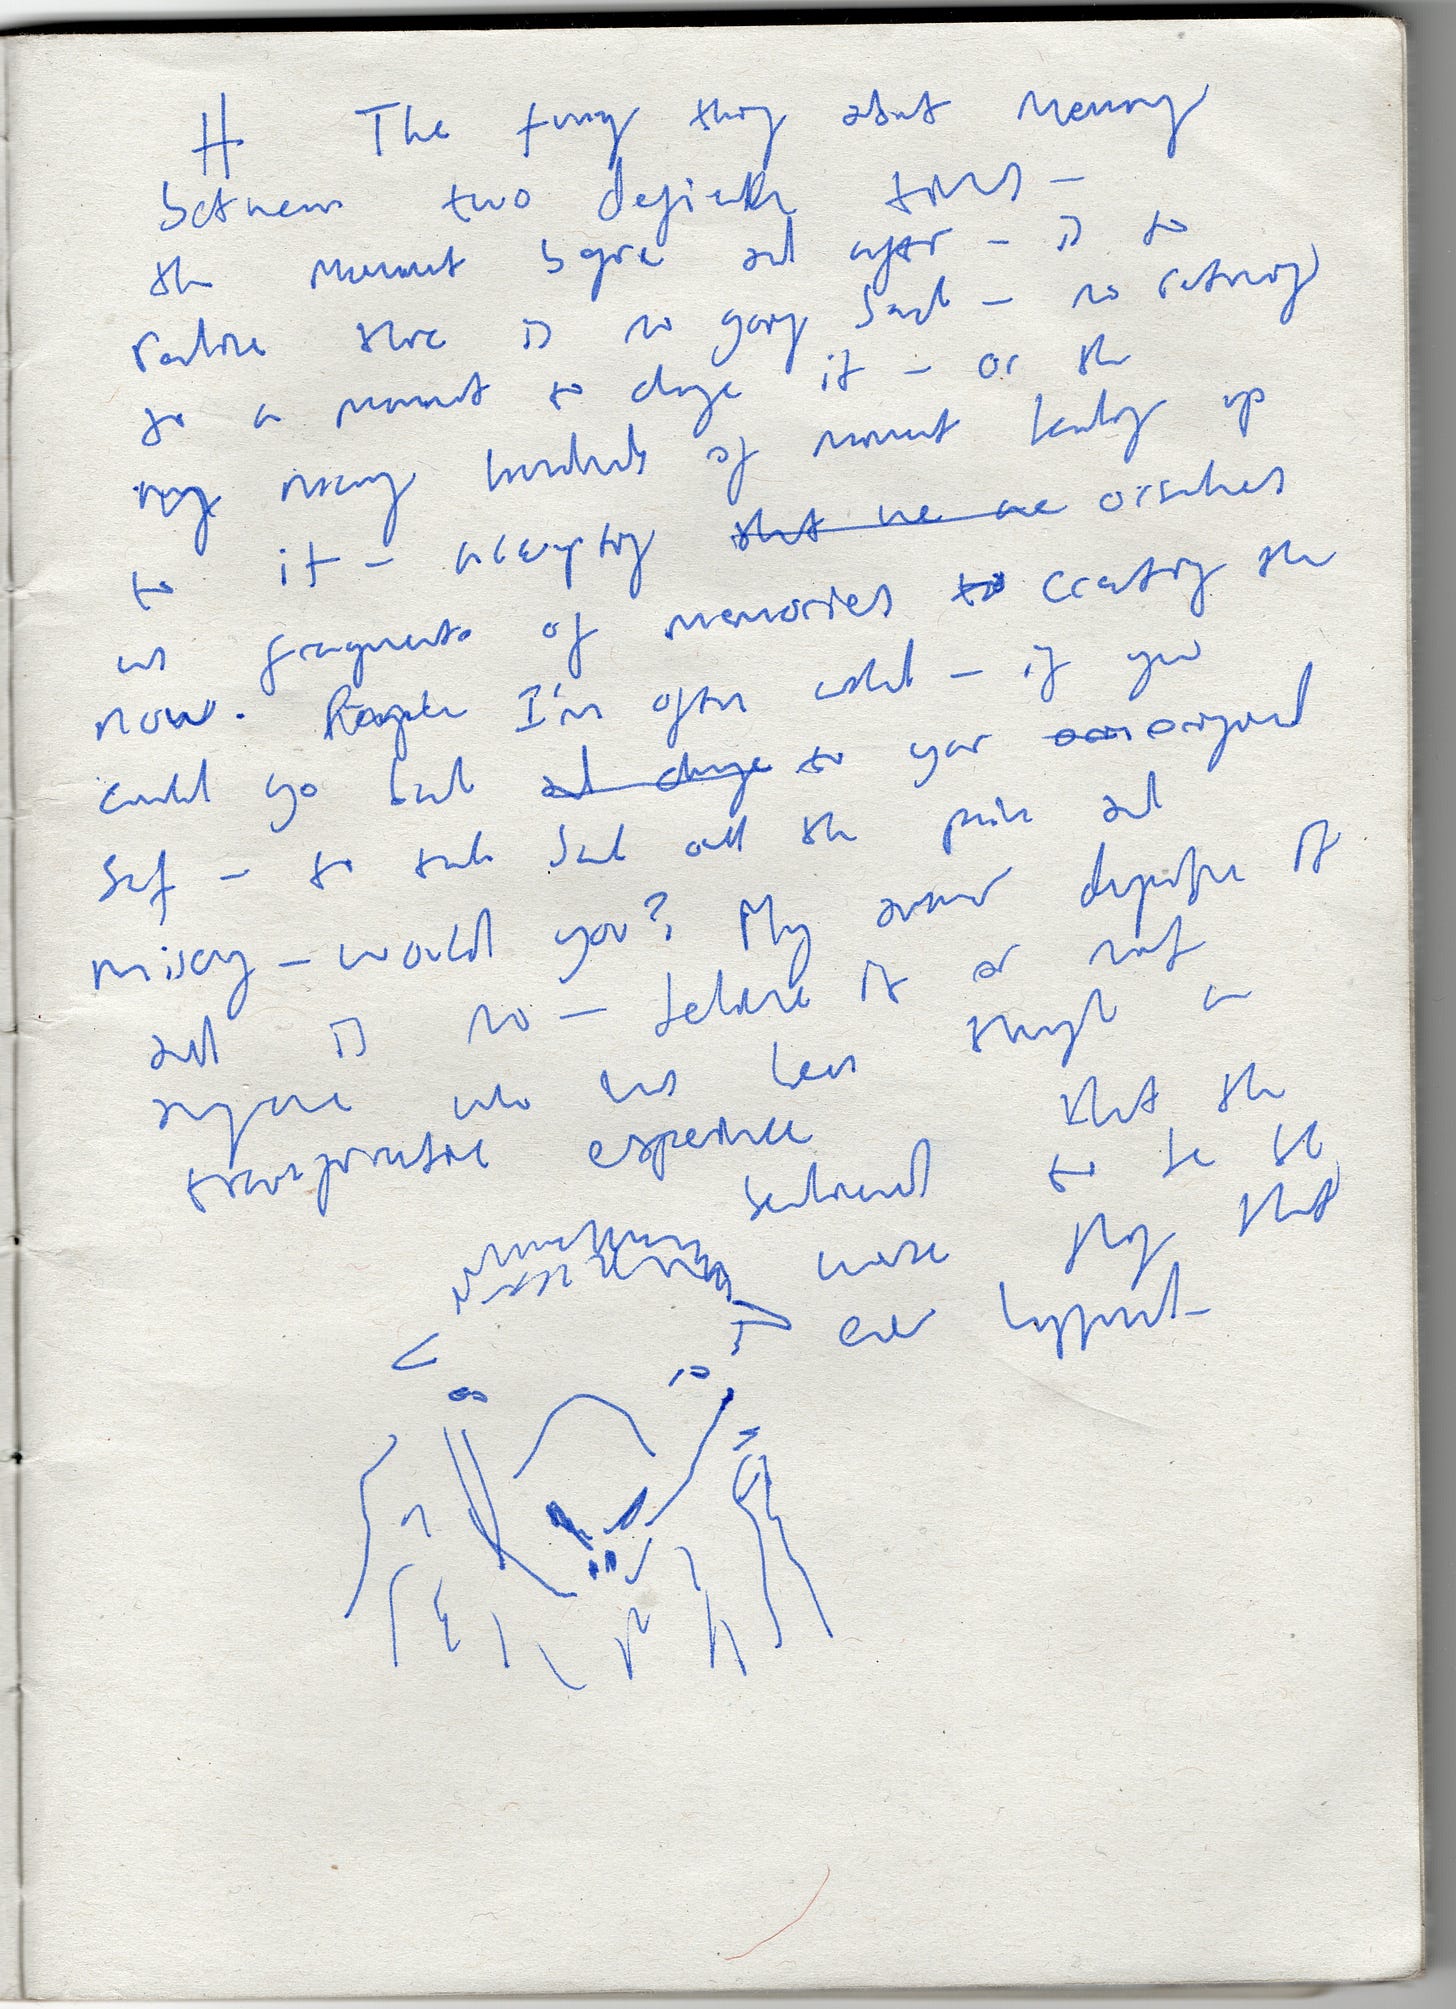 H The funny thing about memory
between two definite times –
the moment before and after – is to
realise there is no going back – no returning
to a moment to change it – or the
many hundreds of moment leading up
to it – accepting that we are ourselves
as fragments of memories to creating the
now. People I'm often asked – if you
could go back and change to your original
self – to take back all the pain and
misery – would you? My answer despite it
all is no – believe it or not
anyone who has been through a
transformative experience that the
believed to be the
worse thing that
ever happened –